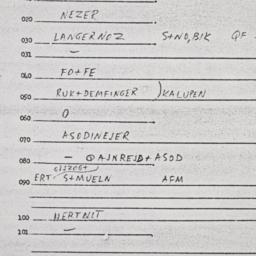 020 NEZER
030 LANGERNOZ S+NO, BIK QF
031 —
040 FO+FE
050 RUK+DEMFINGER ) KALUPEN
060 O
070 ASODINEJER
080 — QAJNREJD+ ASOD
090 ERT S+MUELN AFM
100 HERTNIT
101 —